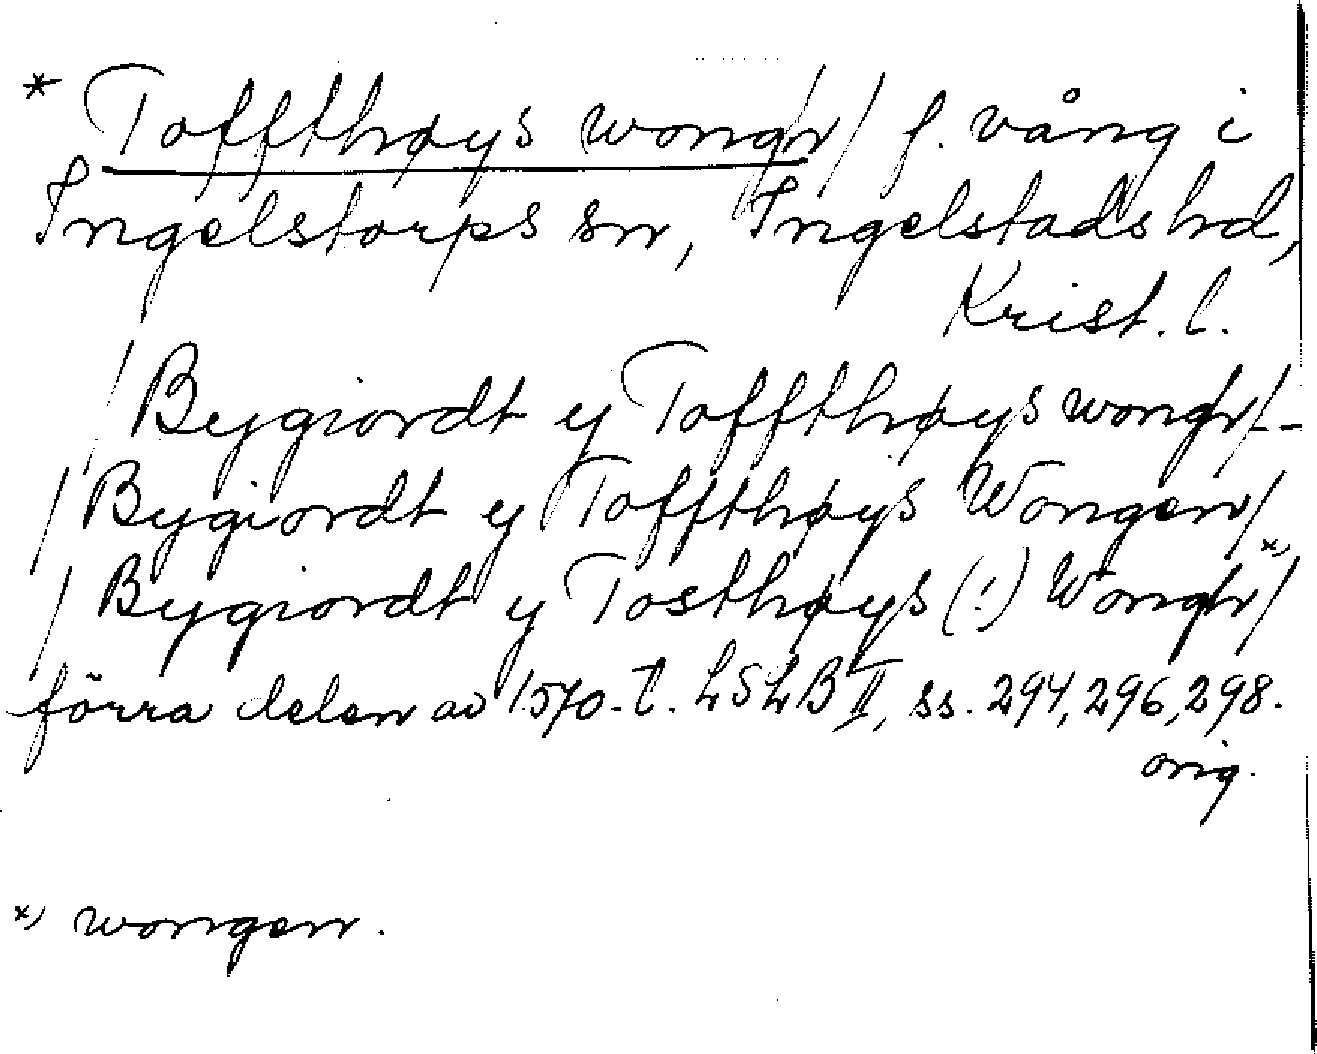 * Toffthøys wongn/ f. vång i
Ingelstorps sn, Ingelstads hd,
Krist. l.
/Bygiordt y Toffthøys wongn/-
/Bygiordt y Toffthøys Wongen/
/Bygiordt y Tosthøys (!) Wongn/ x)
förra delen av 1570-t. LSLB II, ss. 294, 296, 298.
orig.
x) wongen.